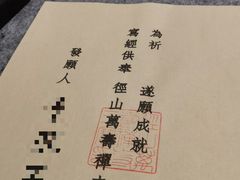 為祈　遂願成就
寫經供奉　徑山萬壽禪
發願人